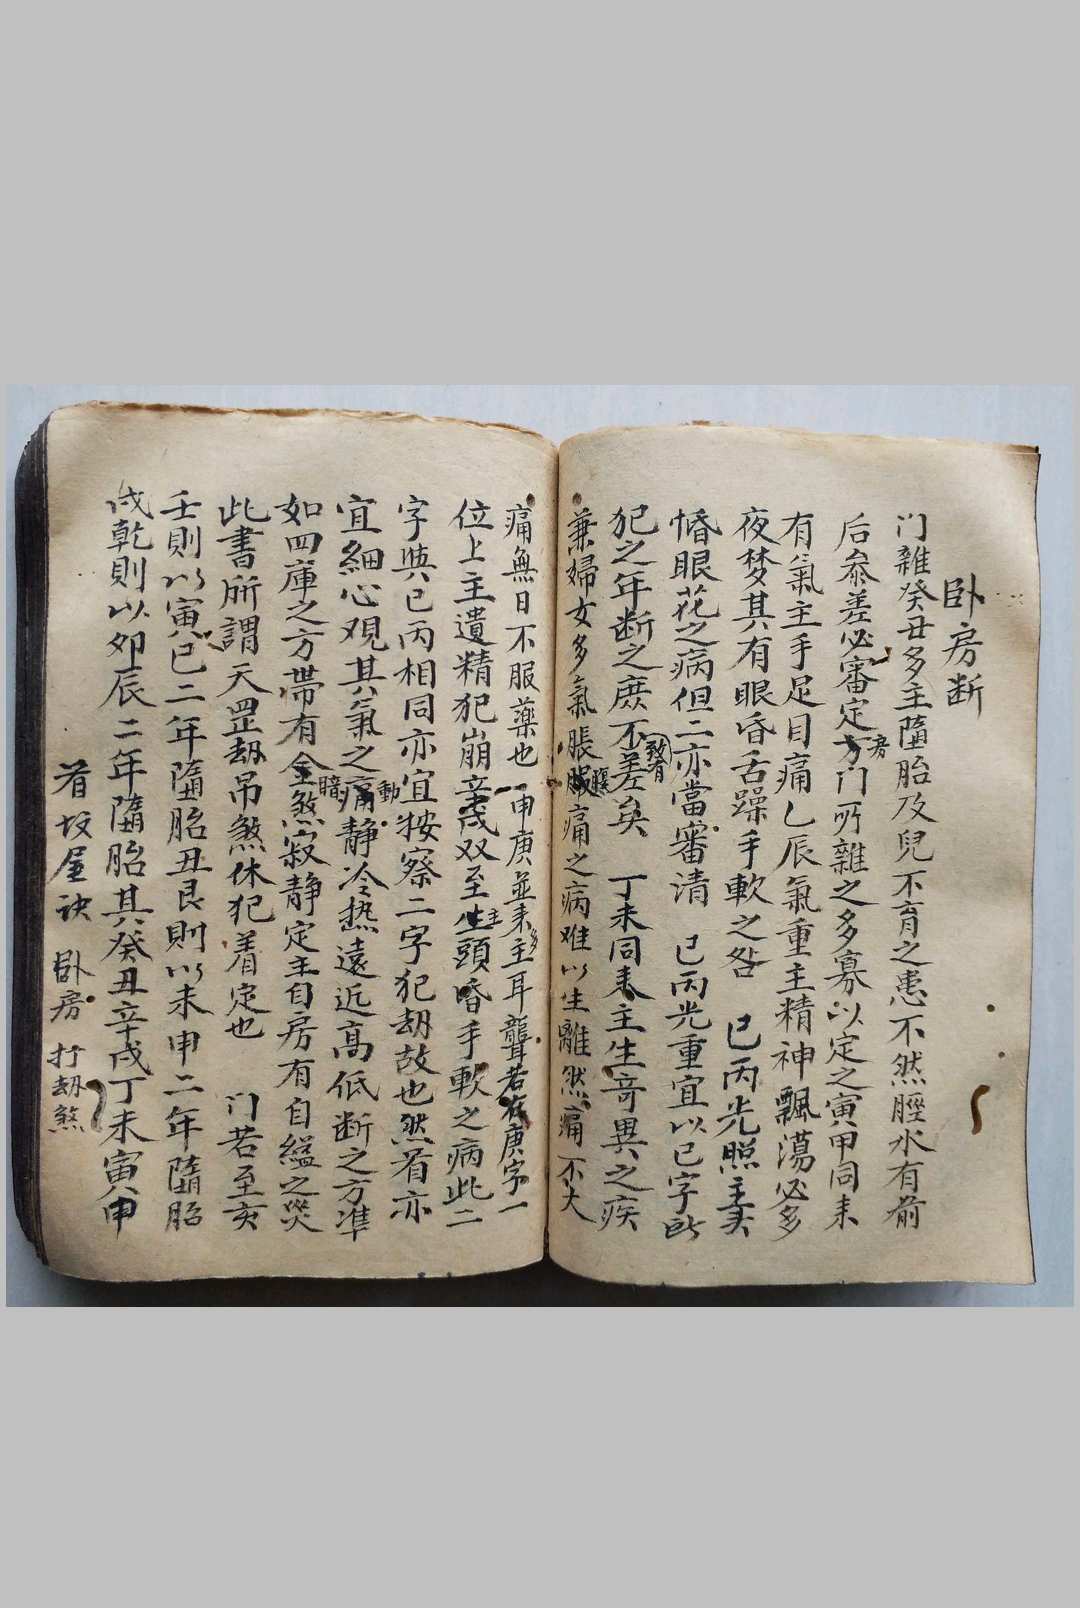 卧房断
门雜癸丑多主墮胎及兒不育之患不然脛水有前
后叅差必審定房门所雜之多寡以定之寅甲同来
有氣主手足目痛乙辰氣重主精神飄蕩必多
夜梦其有眼昏舌躁手軟之咎 巳丙光照主
惛眼花之病但二亦當審清 巳丙光重宜以巳字
犯之年断之庶不致有差矣 丁未同来主生竒異之疾
兼婦女多氣脹痛之病难以生離然痛不大
痛無日不服藥也 申庚並来多主耳聾若在庚字一
位上主遺精犯崩辛戍双至主頭昏手軟之病此二
字與巳丙相同亦宜按察二字犯刼故也然看亦
宜細心观其氣之動静冷热遠近高低断之方準
如四庫之方帶有金煞寂静定主自房有自縊之災
此書所謂天罡刼吊煞休犯着定也 门若至亥
壬則以寅巳二年墮胎丑艮則以未申二年墮胎
戍乾則以夘辰二年墮胎其癸丑辛戍丁未寅申
看坟屋訣 卧房 打刼煞